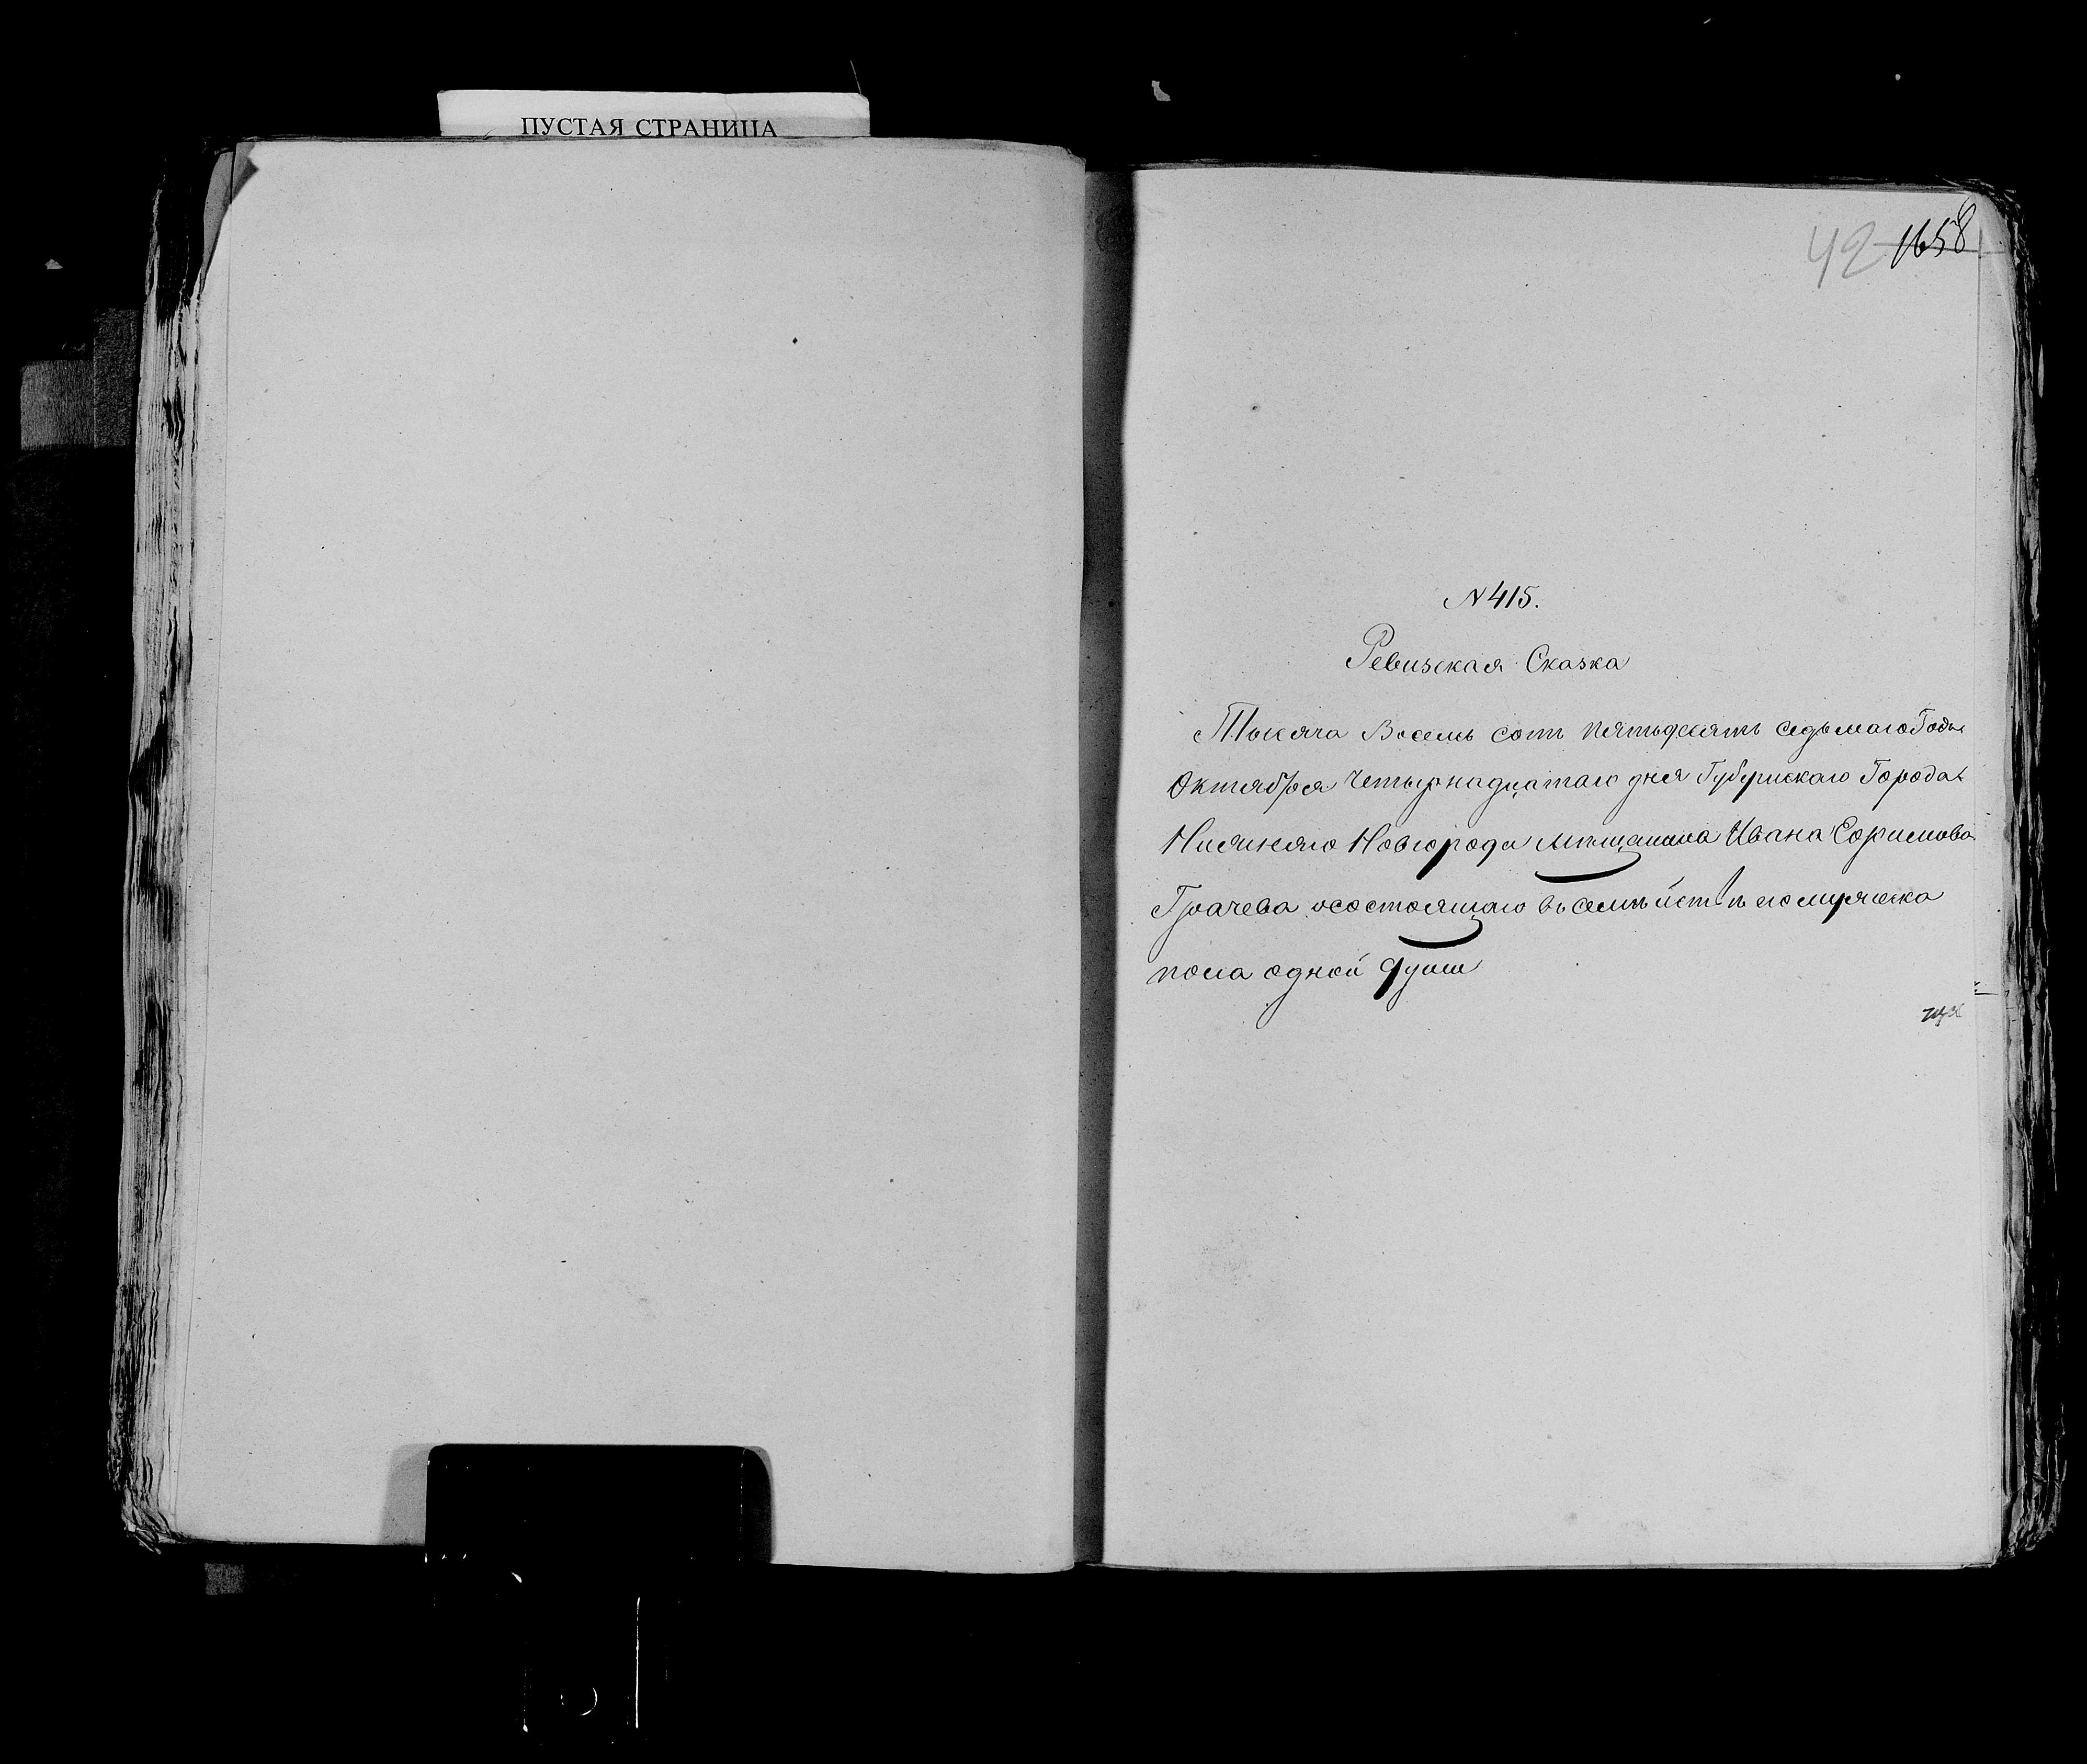 ПУСТАЯ СТРАНИЦА
42 1658
N 415.
Ревизская Сказка
Тысяча Восемь сотъ пятьдесятъ седьмаго Года
Октября Четырнадцатаго дня Губернскаго Города
Нижняго Новгорода мѣщанина Ивана Ефимова
Грачева о состоящаго въ семѣйствѣ его мужеска
пола одной души